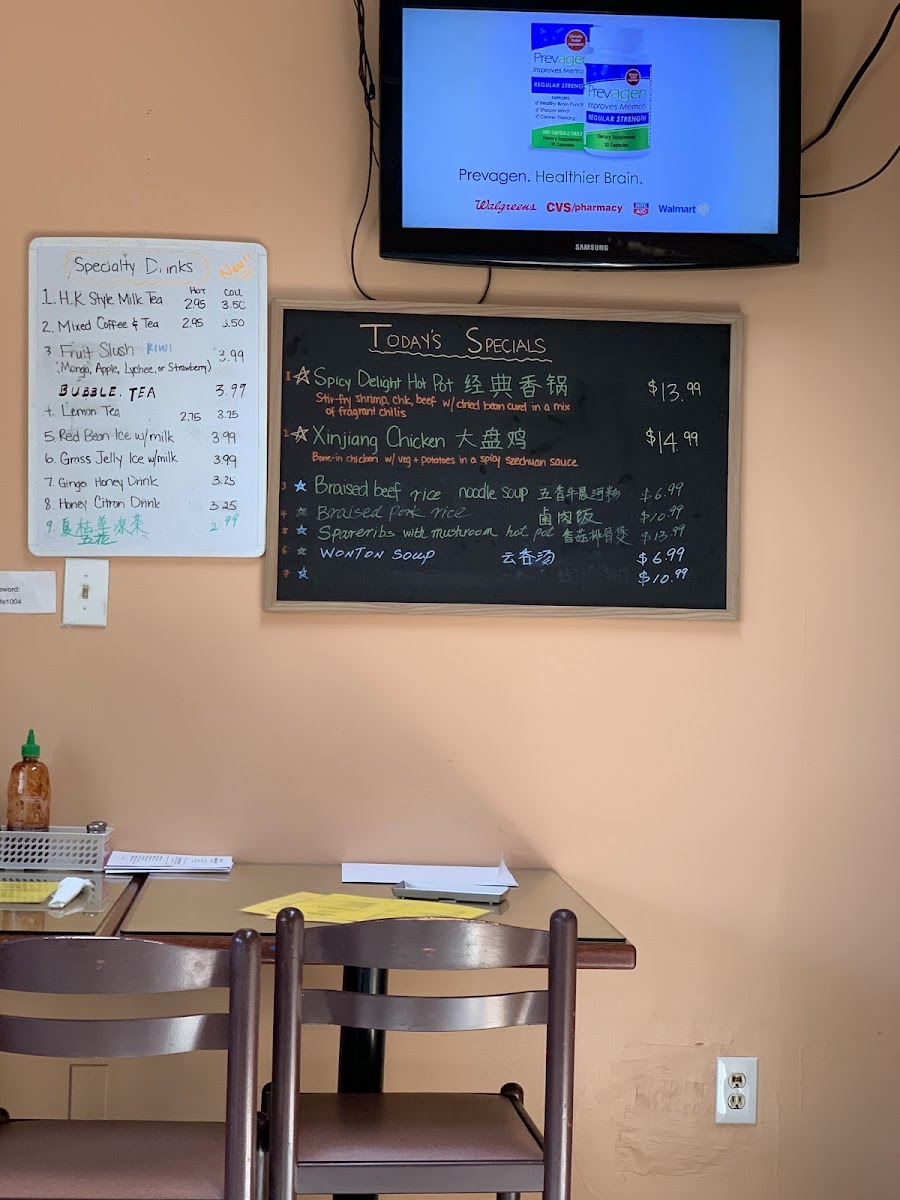 Prevagen
Improves Memory
REGULAR STRENGTH
Healthy Brain Function
Sharper Mind
Clearer Thinking
ONE CAPSULE DAILY
Dietary Supplement
30 Capsules
Prevagen
Improves Memory
REGULAR STRENGTH
Dietary Supplement
30 Capsules
Prevagen. Healthier Brain.
Walgreens CVS/pharmacy RITE AID Walmart
SAMSUNG
Specialty D.inks New!!
HOT COLL
1. H.K. Style Milk Tea 2.95 3.50
2. Mixed Coffee & Tea 2.95 3.50
3 Fruit Slush KIWI 3.99
(Mango, Apple, Lychee, or Strawberry)
BUBBLE. TEA 3.97
4. Lemon Tea 2.75 3.25
5. Red Bean Ice w/milk 3.99
6. Grass Jelly Ice w/milk 3.99
7. Ginger Honey Drink 3.25
8. Honey Citron Drink 3.25
9. 夏枯草凉茶 2.99
五花
TODAY'S SPECIALS
1 Spicy Delight Hot Pot 经典香锅 $13.99
Stir-fry shrimp, chk, beef w/ dried bean curd in a mix
of fragrant chilis
2 Xinjiang Chicken 大盘鸡 $14.99
Bone-in chicken w/ veg + potatoes in a spicy szechuan sauce
3 Braised beef rice noodle soup 五香牛展河粉 $6.99
4 Braised Pork rice 卤肉饭 $10.99
5 Spareribs with mushroom hot pot 香菇排骨煲 $13.99
6 WONTON SOUP 云吞汤 $6.99
7 $10.99
sword:
fe1004